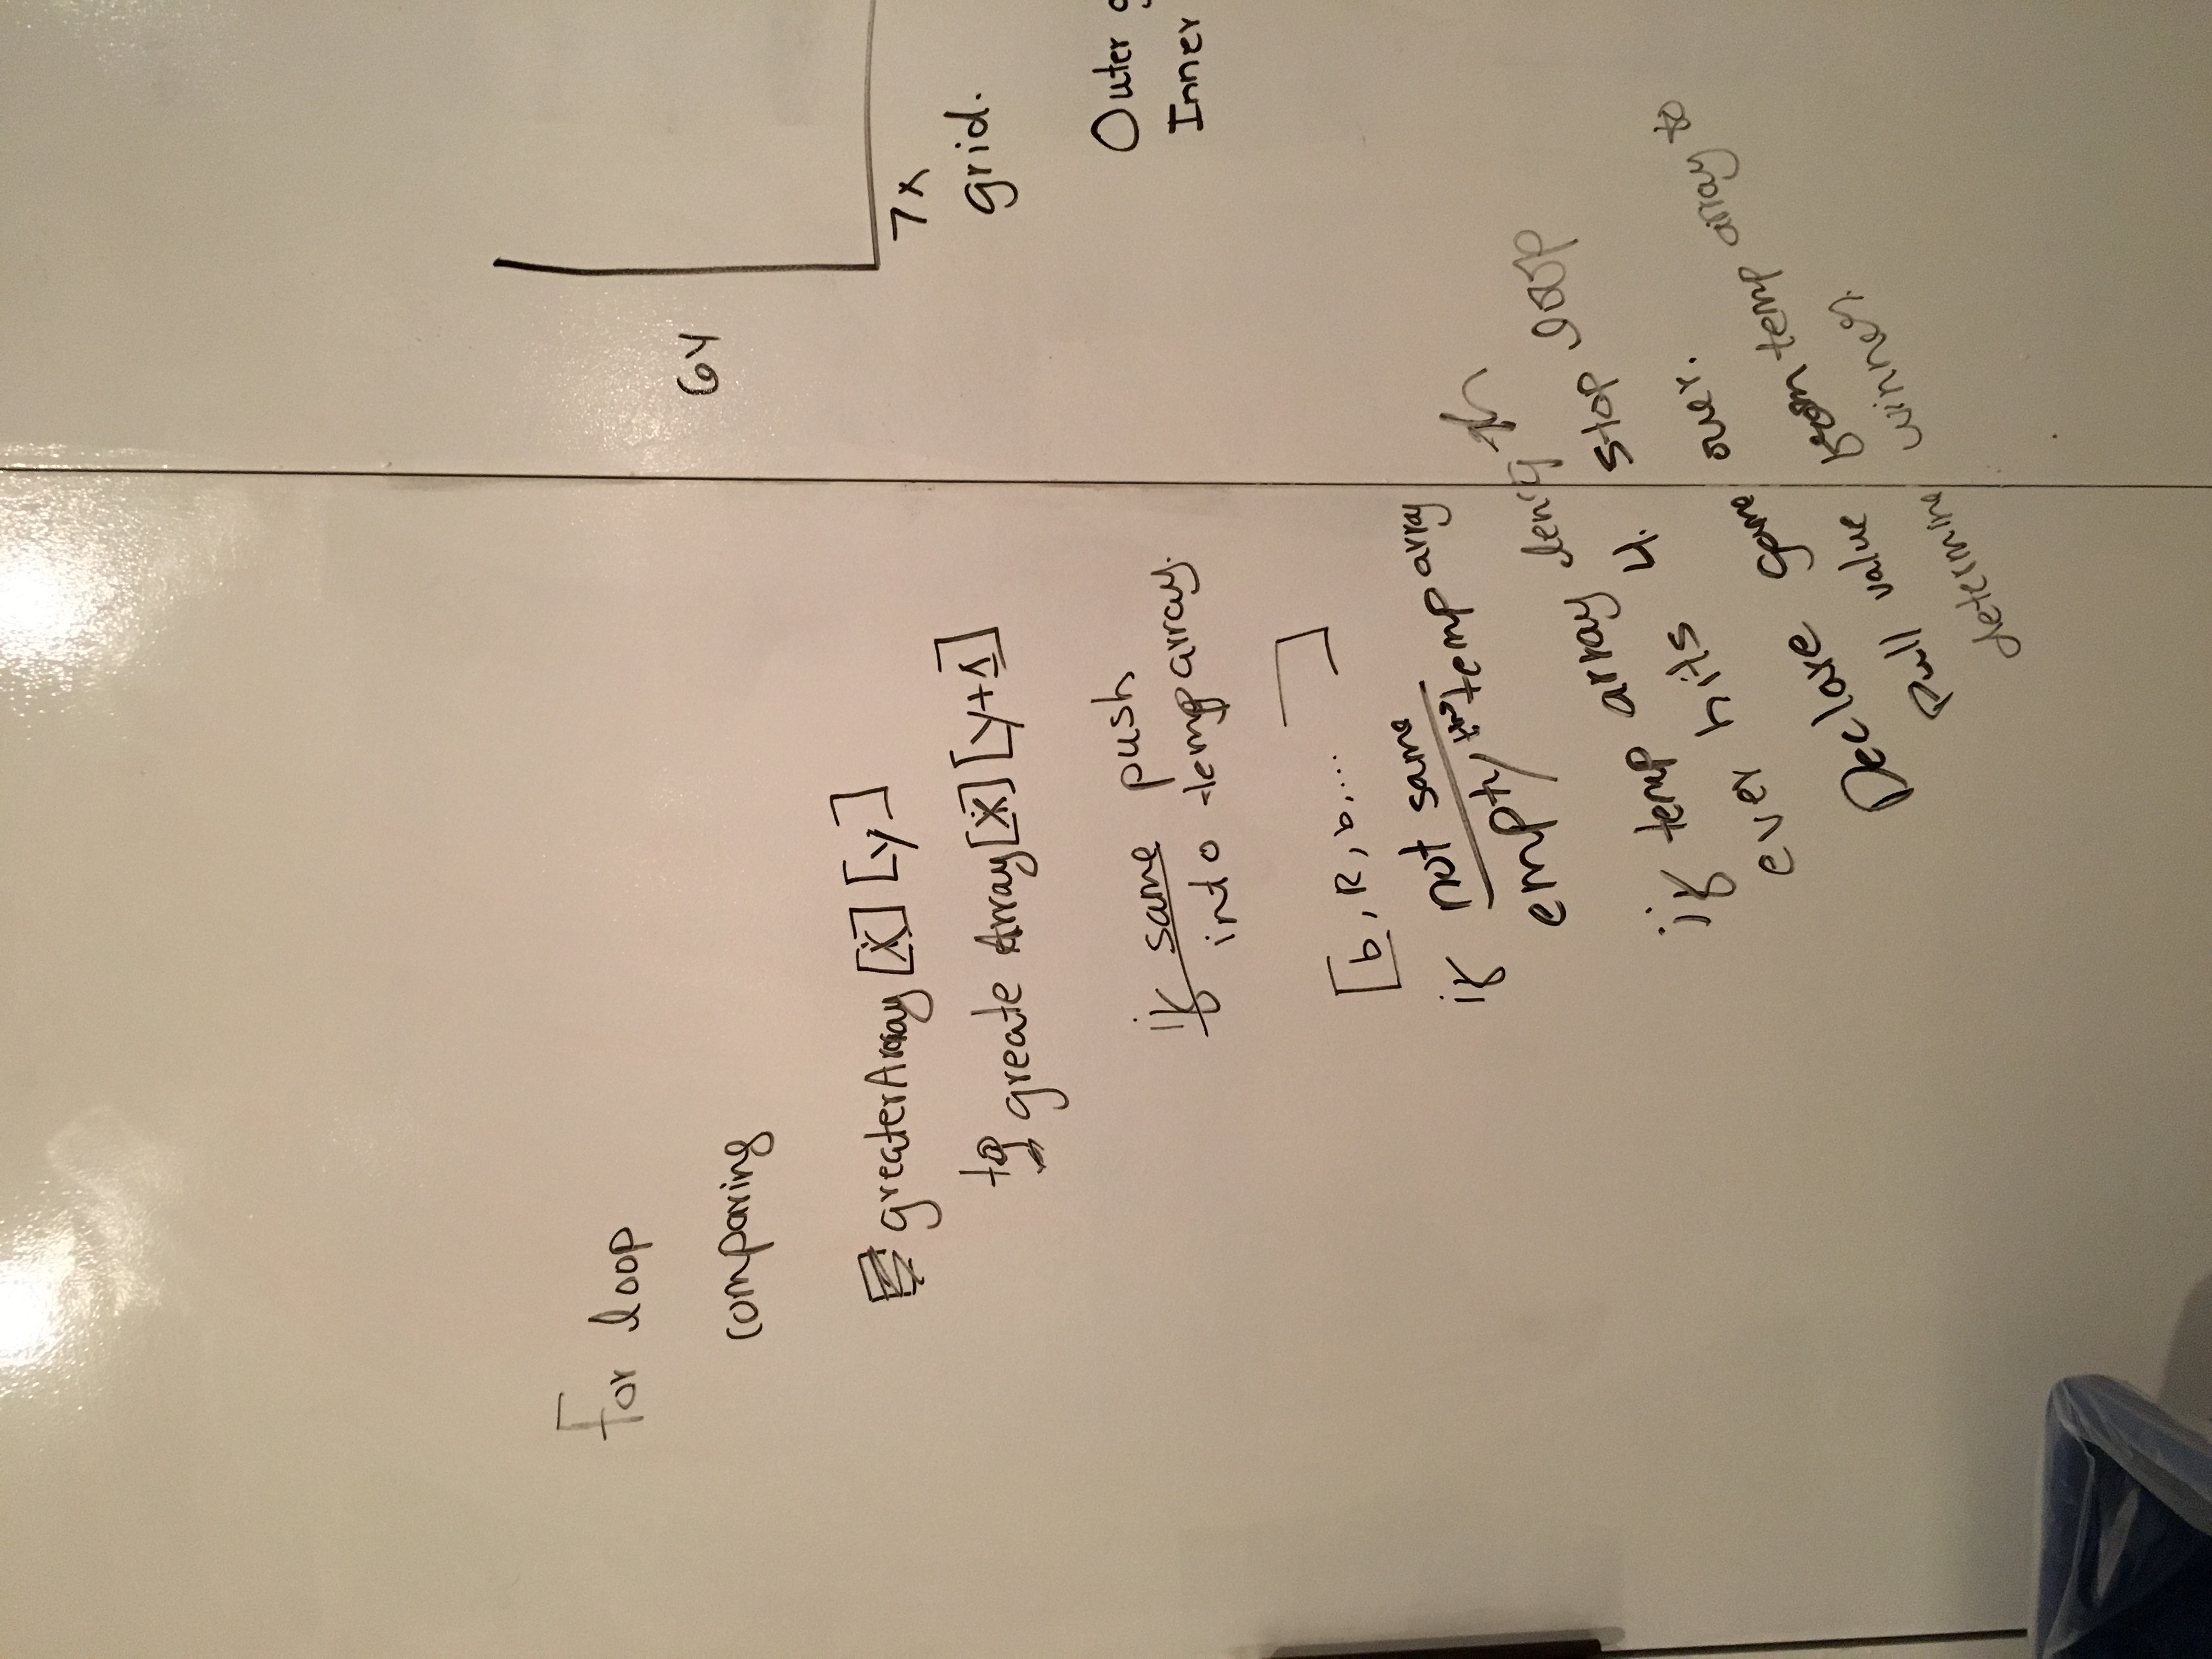 For loop
comparing
greaterArray [X] [y]
to greate Array [X] [y+1]
if same push
into temp array.
[b, R, b, ... ]
if not same
empty the temp array
if temp array length
ever hits 4. stop loop
Declare game over.
Pull value from temp array to
determine winner.
6y
7x
grid.
Outer
Inner